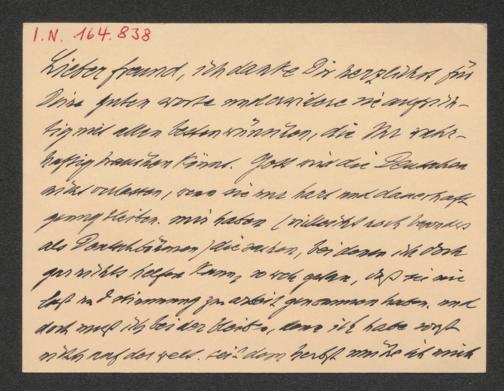 I.N. 164.838
Lieber freund, ich danke Dir herzlichst für
Deine guten worte und erwidere sie aufrich-
tig mit allen besten wünschen, die Ihr wahr-
haftig brauchen könnt. Gott wird die Deutschen
nicht verlassen, wenn sie nur hart und dauerhaft
genug bleiben. mir haben (vielleicht noch besonders
als Deutschböhmen) die sachen, bei denen ich doch
gar nichts helfen kann, so weh gethan, daß sie mir
lust und stimmung zu arbeit genommen haben. und
doch muß ich bei der bleiben, denn ich habe sonst
nichts auf der welt. seit dem herbst mühe ich mich